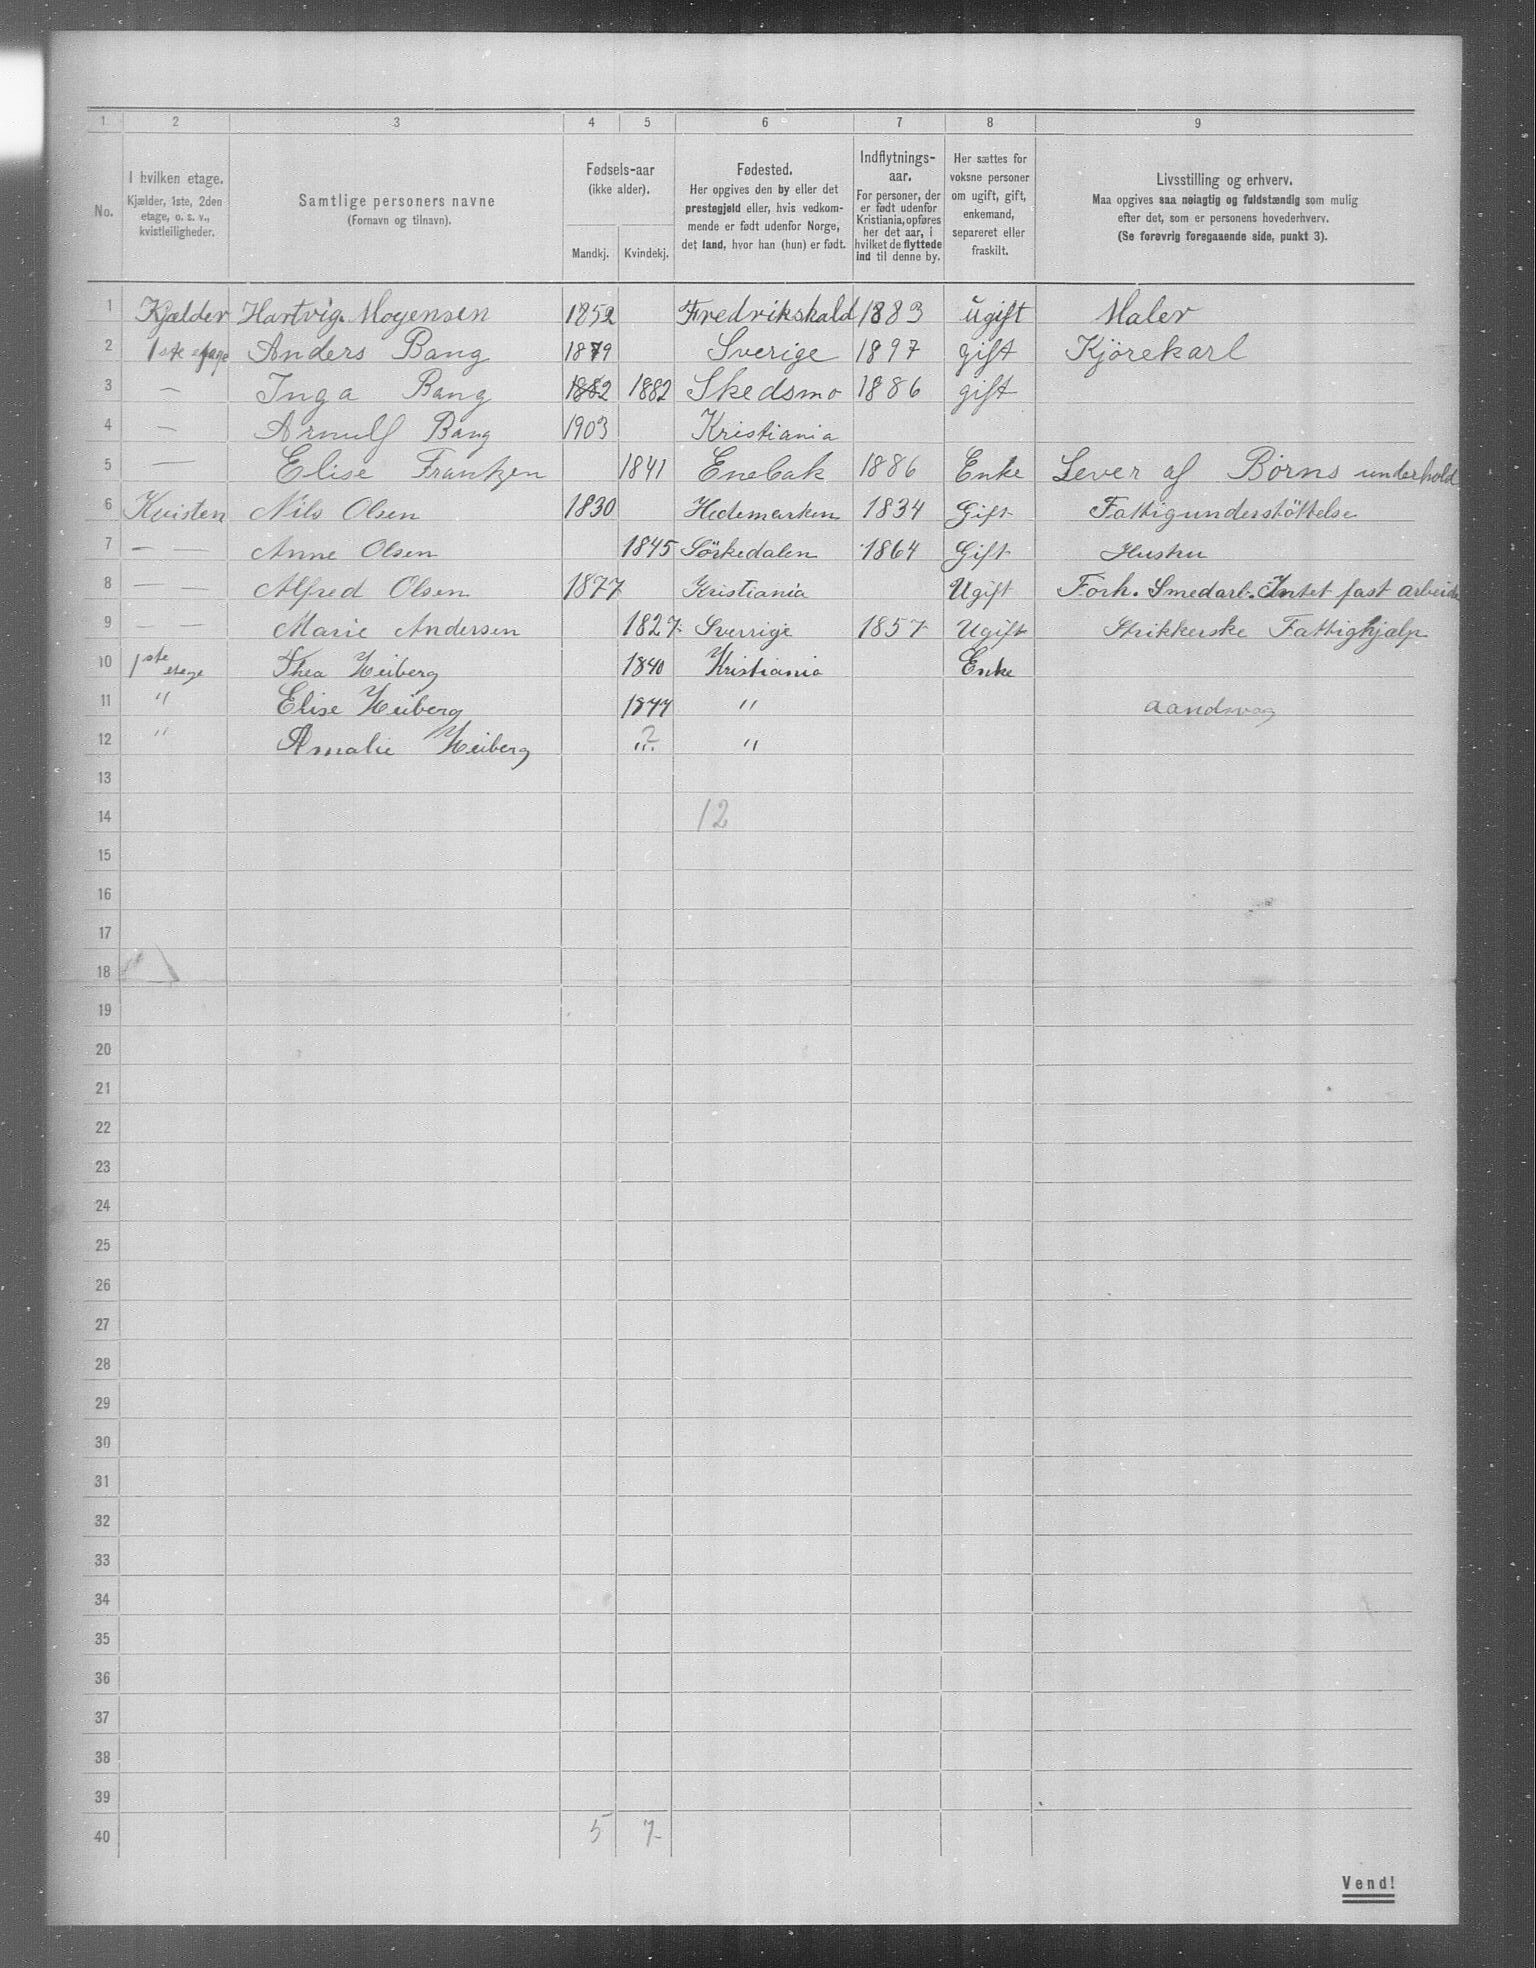 1 2 3 4 5 6 7 8 9
No.
I hvilken etage.
Kjælder, 1ste, 2den
etage, o. s. v.,
kvistleiligheder.
Samtlige personers navne
(Fornavn og tilnavn).
Fødsels-aar
(ikke alder).
Mandkj. Kvindekj.
Fødested.
Her opgives den by eller det
prestegjeld eller, hvis vedkom-
mende er født udenfor Norge,
det land, hvor han (hun) er født.
Indflytnings-
aar.
For personer, der
er født udenfor
Kristiania, opføres
her det aar, i
hvilket de flyttede
ind til denne by.
Her sættes for
voksne personer
om ugift, gift,
enkemand,
separeret eller
fraskilt.
Livsstilling og erhverv.
Maa opgives saa nøiagtig og fuldstændig som mulig
efter det, som er personens hovederhverv.
(Se forøvrig foregaaende side, punkt 3).
1 Kjælder Hartvig. Mogensen 1852 Fredrikshald 1883 ugift Maler
2 1ste etage Anders Bang 1879 Sverige 1897 gift Kjörekarl
3 — Inga Bang 1882 1882 Skedsmo 1886 gift
4 — Arnulf Bang 1903 Kristiania
5 — Elise Frantzen 1841 Enebak 1886 Enke Lever af Börns underhold
6 Kvisten Nils Olsen 1830 Hedemarken 1834 Gift Fattigunderstöttelse
7 — — Anne Olsen 1845 Sörkedalen 1864 Gift Hustru
8 — — Alfred Olsen 1877 Kristiania Ugift Forh. Smedarb. Intet fast arbeide
9 — — Marie Andersen 1827 Sverrige 1857 Ugift Strikkerske Fattighjælp
10 1ste etage Thea Heiberg 1840 Kristiania Enke
11 " Elise Heiberg 1844 " aandsvag
12 " Amalie Heiberg "?" "
13
14 12
15
16
17
18
19
20
21
22
23
24
25
26
27
28
29
30
31
32
33
34
35
36
37
38
39
40 5 7
Vend!